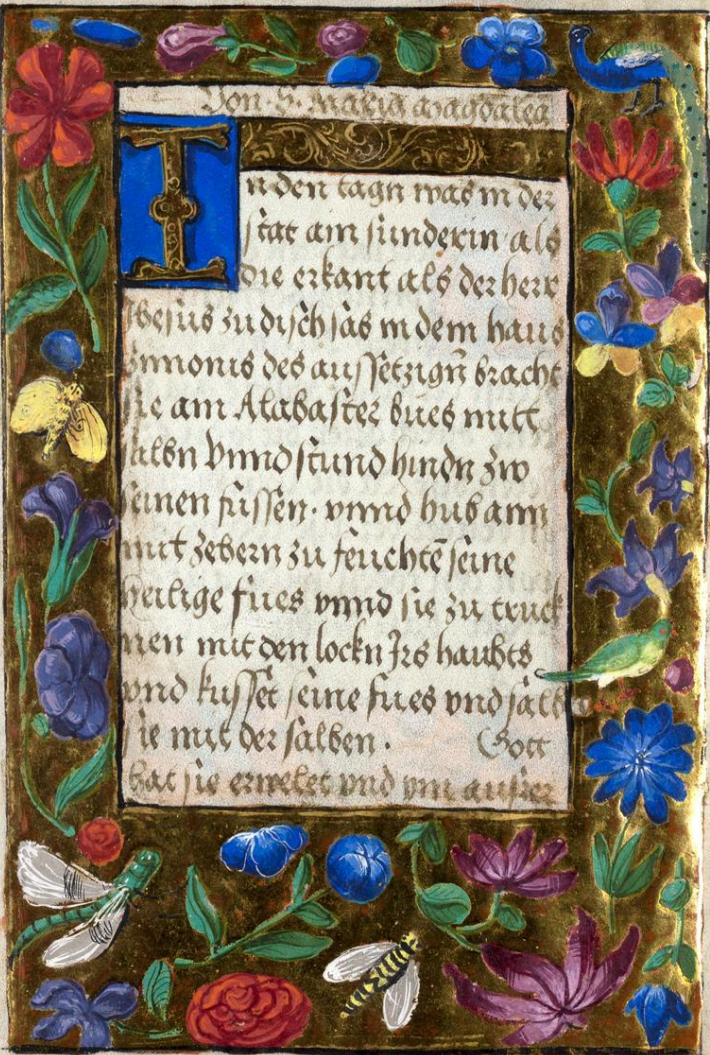 Von · S · Maria Magdalea
In den tagn was in der
stat am sunderin · als
die erkant als der herr
Jhesus zu disch sas in dem haus
simonis des aussetzign̄ bracht
sie am Alabaster bues mitt
salbn Vnnd stund hindn zw
seinen füssen · vnnd hub ann
mit zehern zu feuchtē seine
heilige fües vnnd sie zu truck
nen mit den lockn Irs haubts
vnd kusset seine fües vnd salb
sie mit der salben · Gott
hat sie erwelet vnd